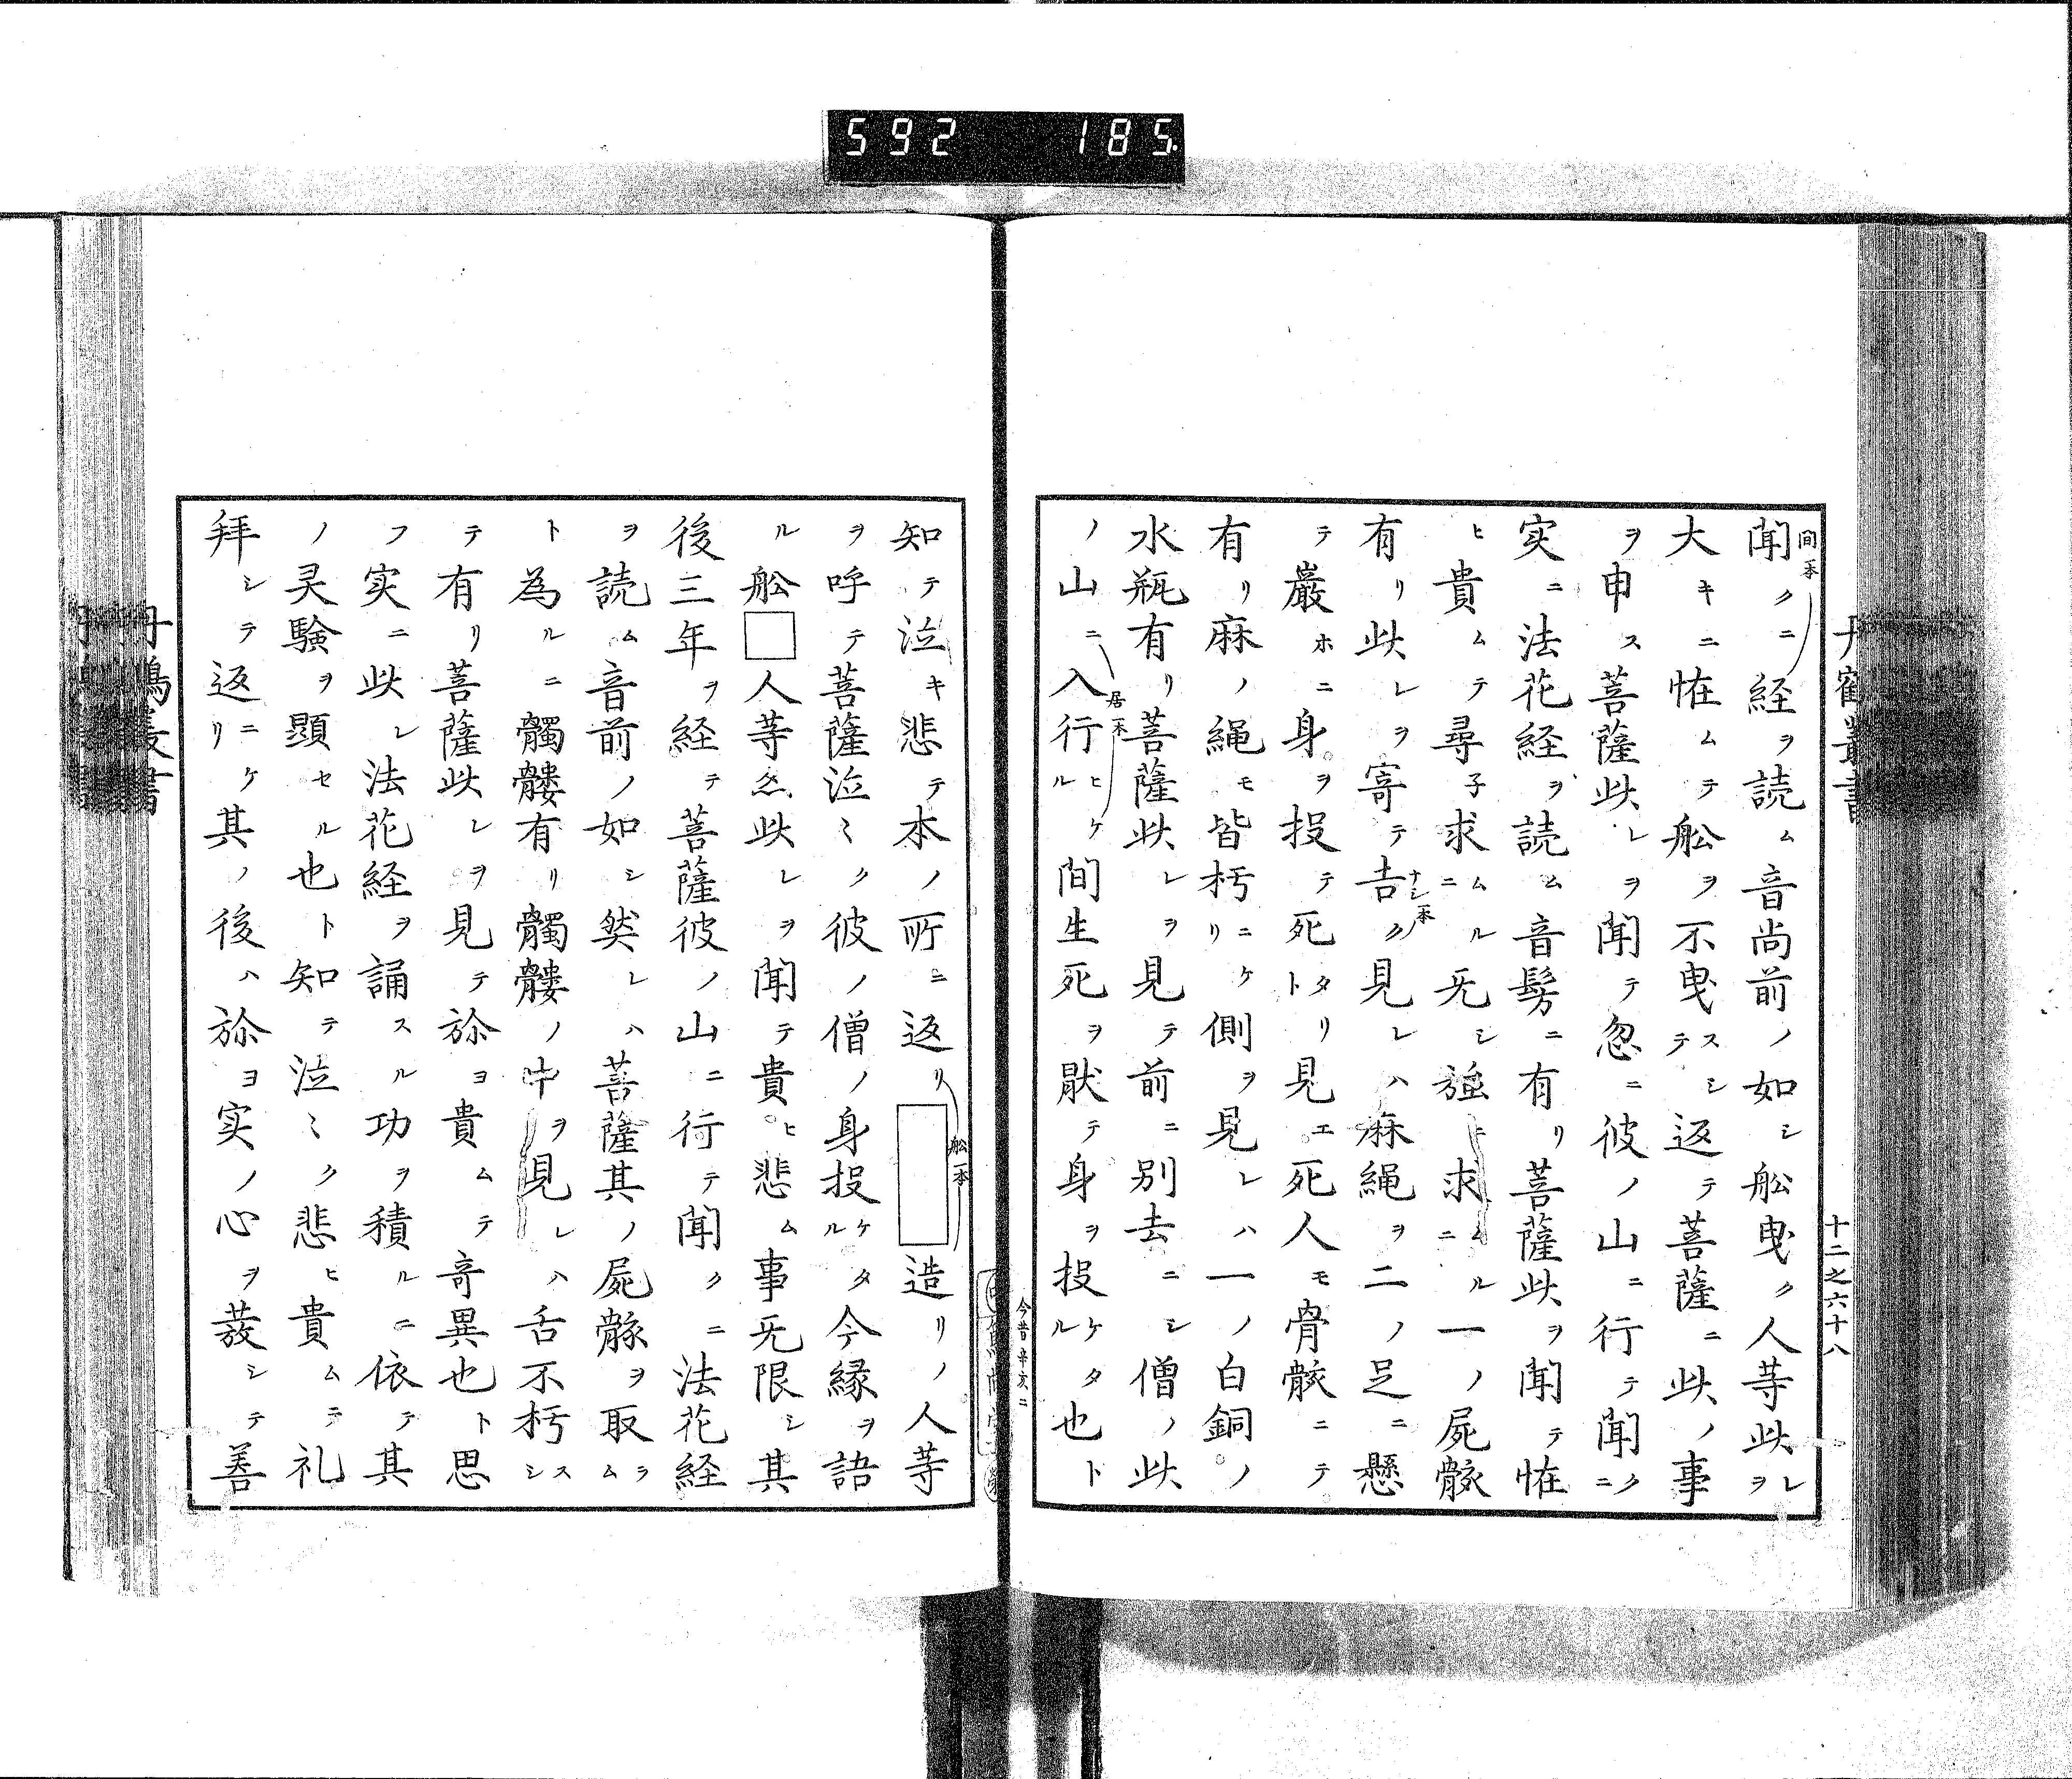 592 185
丹鶴叢書
十二之六十八
間一本
聞クニ経ヲ読ム音尚前ノ如シ舩曳ク人等此レヲ
大キニ恠ムテ舩ヲ不曳スシテ返テ菩薩ニ此ノ事
ヲ申ス菩薩此レヲ聞テ忽ニ彼ノ山ニ行テ聞クニ
実ニ法花経ヲ読ム音髣ニ有リ菩薩此ヲ聞テ恠
ヒ貴ムテ尋子求ムルニ无シ強ニ求ムルニ一ノ屍骸
有リ此レヲ寄テ吉ク見レハ麻縄ヲ二ノ足ニ懸
ナシ一本
テ巖ホニ身ヲ投テ死タリト見エ死人モ骨骸ニテ
有リ麻ノ縄モ皆朽ニケリ側ヲ見レハ一ノ白銅ノ
水瓶有リ菩薩此レヲ見テ前ニ別去ニシ僧ノ此
居一本
ノ山ニ入行ヒケル間生死ヲ猒テ身ヲ投ケタル也ト
今昔辛亥ニ
知テ泣キ悲テ本ノ所ニ返リ□造リノ人等
舩一本
ヲ呼テ菩薩泣ミク彼ノ僧ノ身投ケタル今縁ヲ語
ル舩□人等亦此レヲ聞テ貴ヒ悲ム事无限シ其
後三年ヲ経テ菩薩彼ノ山ニ行テ聞クニ法花経
ヲ読ム音前ノ如シ然レハ菩薩其ノ屍骸ヲ取ラム
ト為ルニ髑髏有リ髑髏ノ中ヲ見レハ舌不朽スシ
テ有リ菩薩此レヲ見テ弥ヨ貴ムテ奇異也ト思
フ実ニ此レ法花経ヲ誦スル功ヲ積ルニ依テ其
ノ灵験ヲ顕セル也ト知テ泣ミク悲ヒ貴ムテ礼
拜シテ返ニケリ其ノ後ハ弥ヨ実ノ心ヲ𤼵シテ善
丹鶴叢書